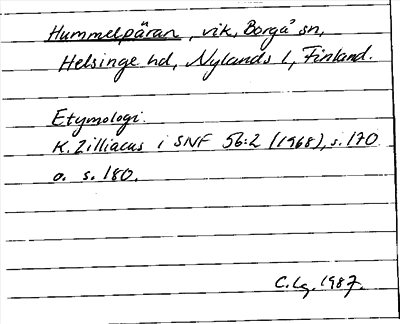 Hummelpäran, vik, Borgå sn,
Helsinge hd, Nylands l, Finland.
Etymologi.
K. Zilliacus i SNF 56:2 (1968), s. 170
o. s. 180.
C. Lg. 1987.